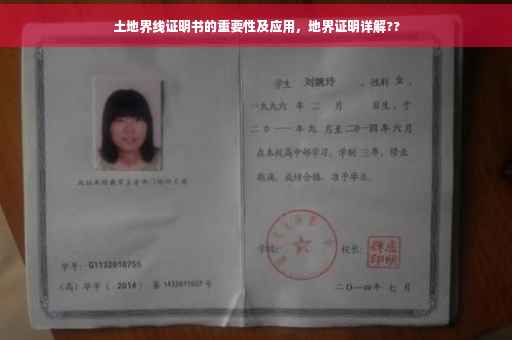 土地界线证明书的重要性及应用，地界证明详解??
学生 刘婉玲 ，性别 女 ，
一九九六 年 二 月 日生，于
二〇一一 年 九 月至 二〇一四 年 六 月
在本校高中部学习，学制 三年，修业
期满，成绩合格，准予毕业。
学校： 校长：
学号： G1132010755
（高）毕字（ 2014 ）第 1432011007 号
二〇一四年 七 月